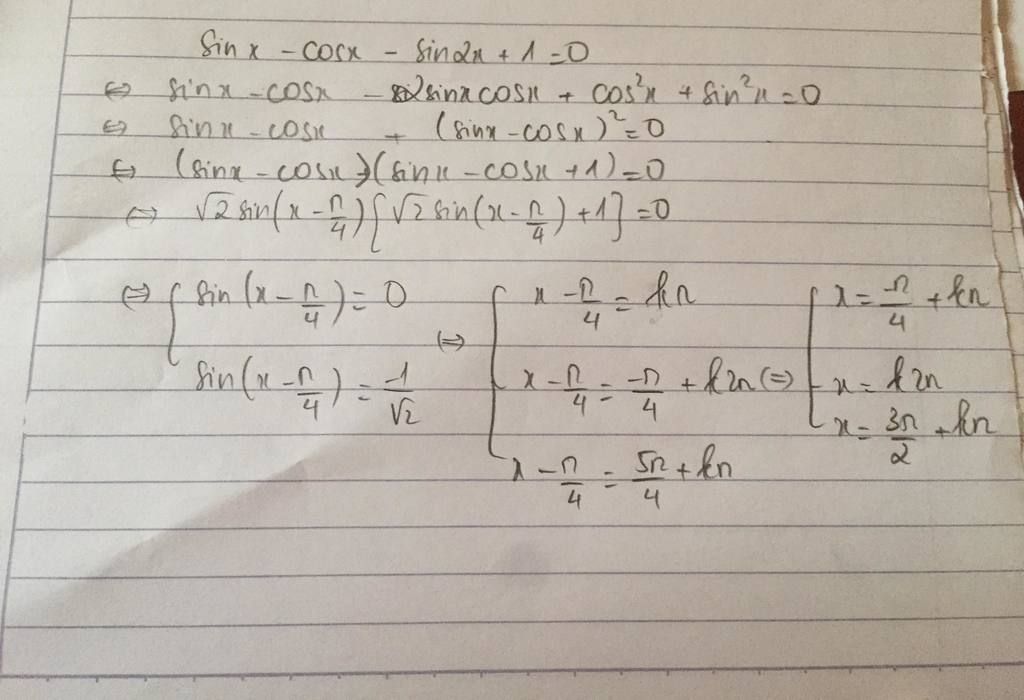 sinx - cosx - sin2x + 1 = 0
⇔ sinx - cosx - 2sinxcosx + cos²x + sin²x = 0
⇔ sinx - cosx + (sinx - cosx)² = 0
⇔ (sinx - cosx)(sinx - cosx + 1) = 0
⇔ √2 sin(x - π/4)[√2 sin(x - π/4) + 1] = 0
⇔ [ sin(x - π/4) = 0 ⇔ [ x - π/4 = kπ ⇔ [ x = π/4 + kπ
sin(x - π/4) = -1/√2 x - π/4 = -π/4 + k2π x = k2π
x - π/4 = 5π/4 + kπ x = 3π/2 + kπ